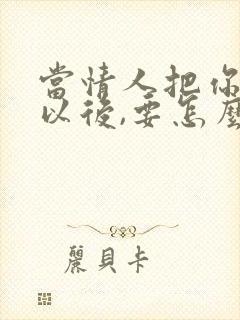 當情人把你
以後,要怎麼
麗貝卡